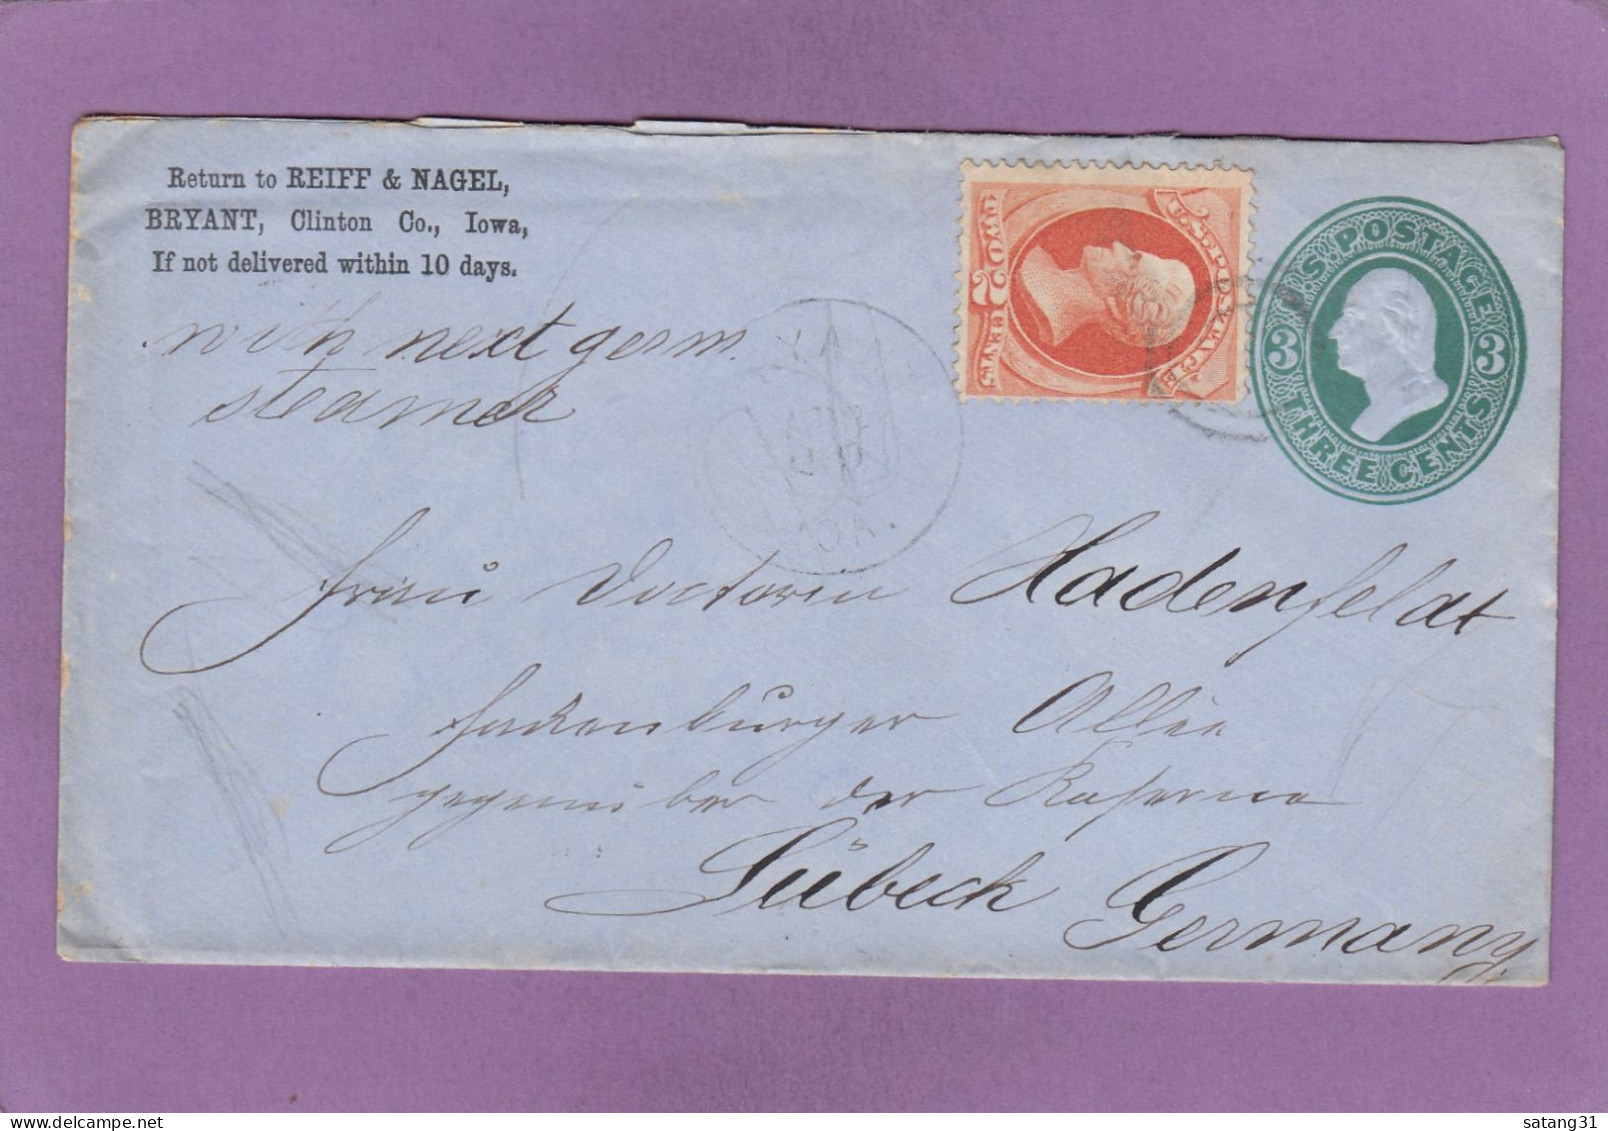 Return to REIFF & NAGEL,
BRYANT, Clinton Co., Iowa,
If not delivered within 10 days.
with next germ.
steamer
U.S. POSTAGE
TWO 2 CENTS
U.S. POSTAGE
3 3
THREE CENTS
Frau Doctorin Hadenfeldt
Fackenburger Allee
gegenüber der Kaserne
Lübeck Germany
satang31